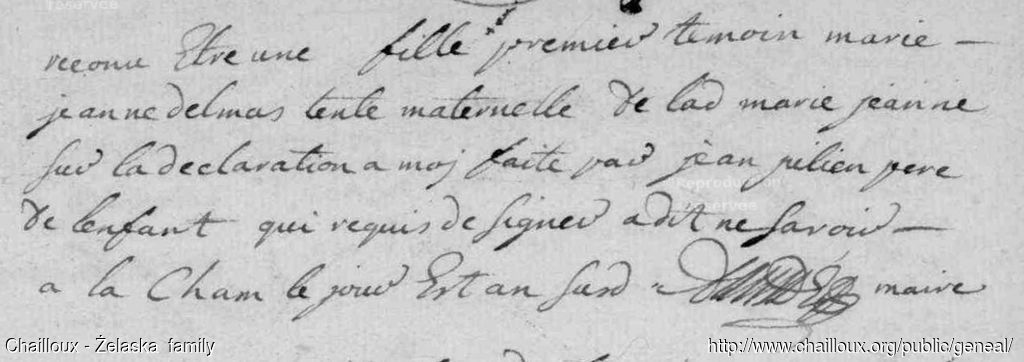 reconu Etre une fille premier temoin marie —
jeanne delmas tente maternelle de lad marie jeanne
sur la declaration a moj faite par jean pilien pere
de lenfant qui requis de signer a dit ne savoir —
a la Cham le jour Est an susd maire
Chailloux - Żelaska family
http://www.chailloux.org/public/geneal/